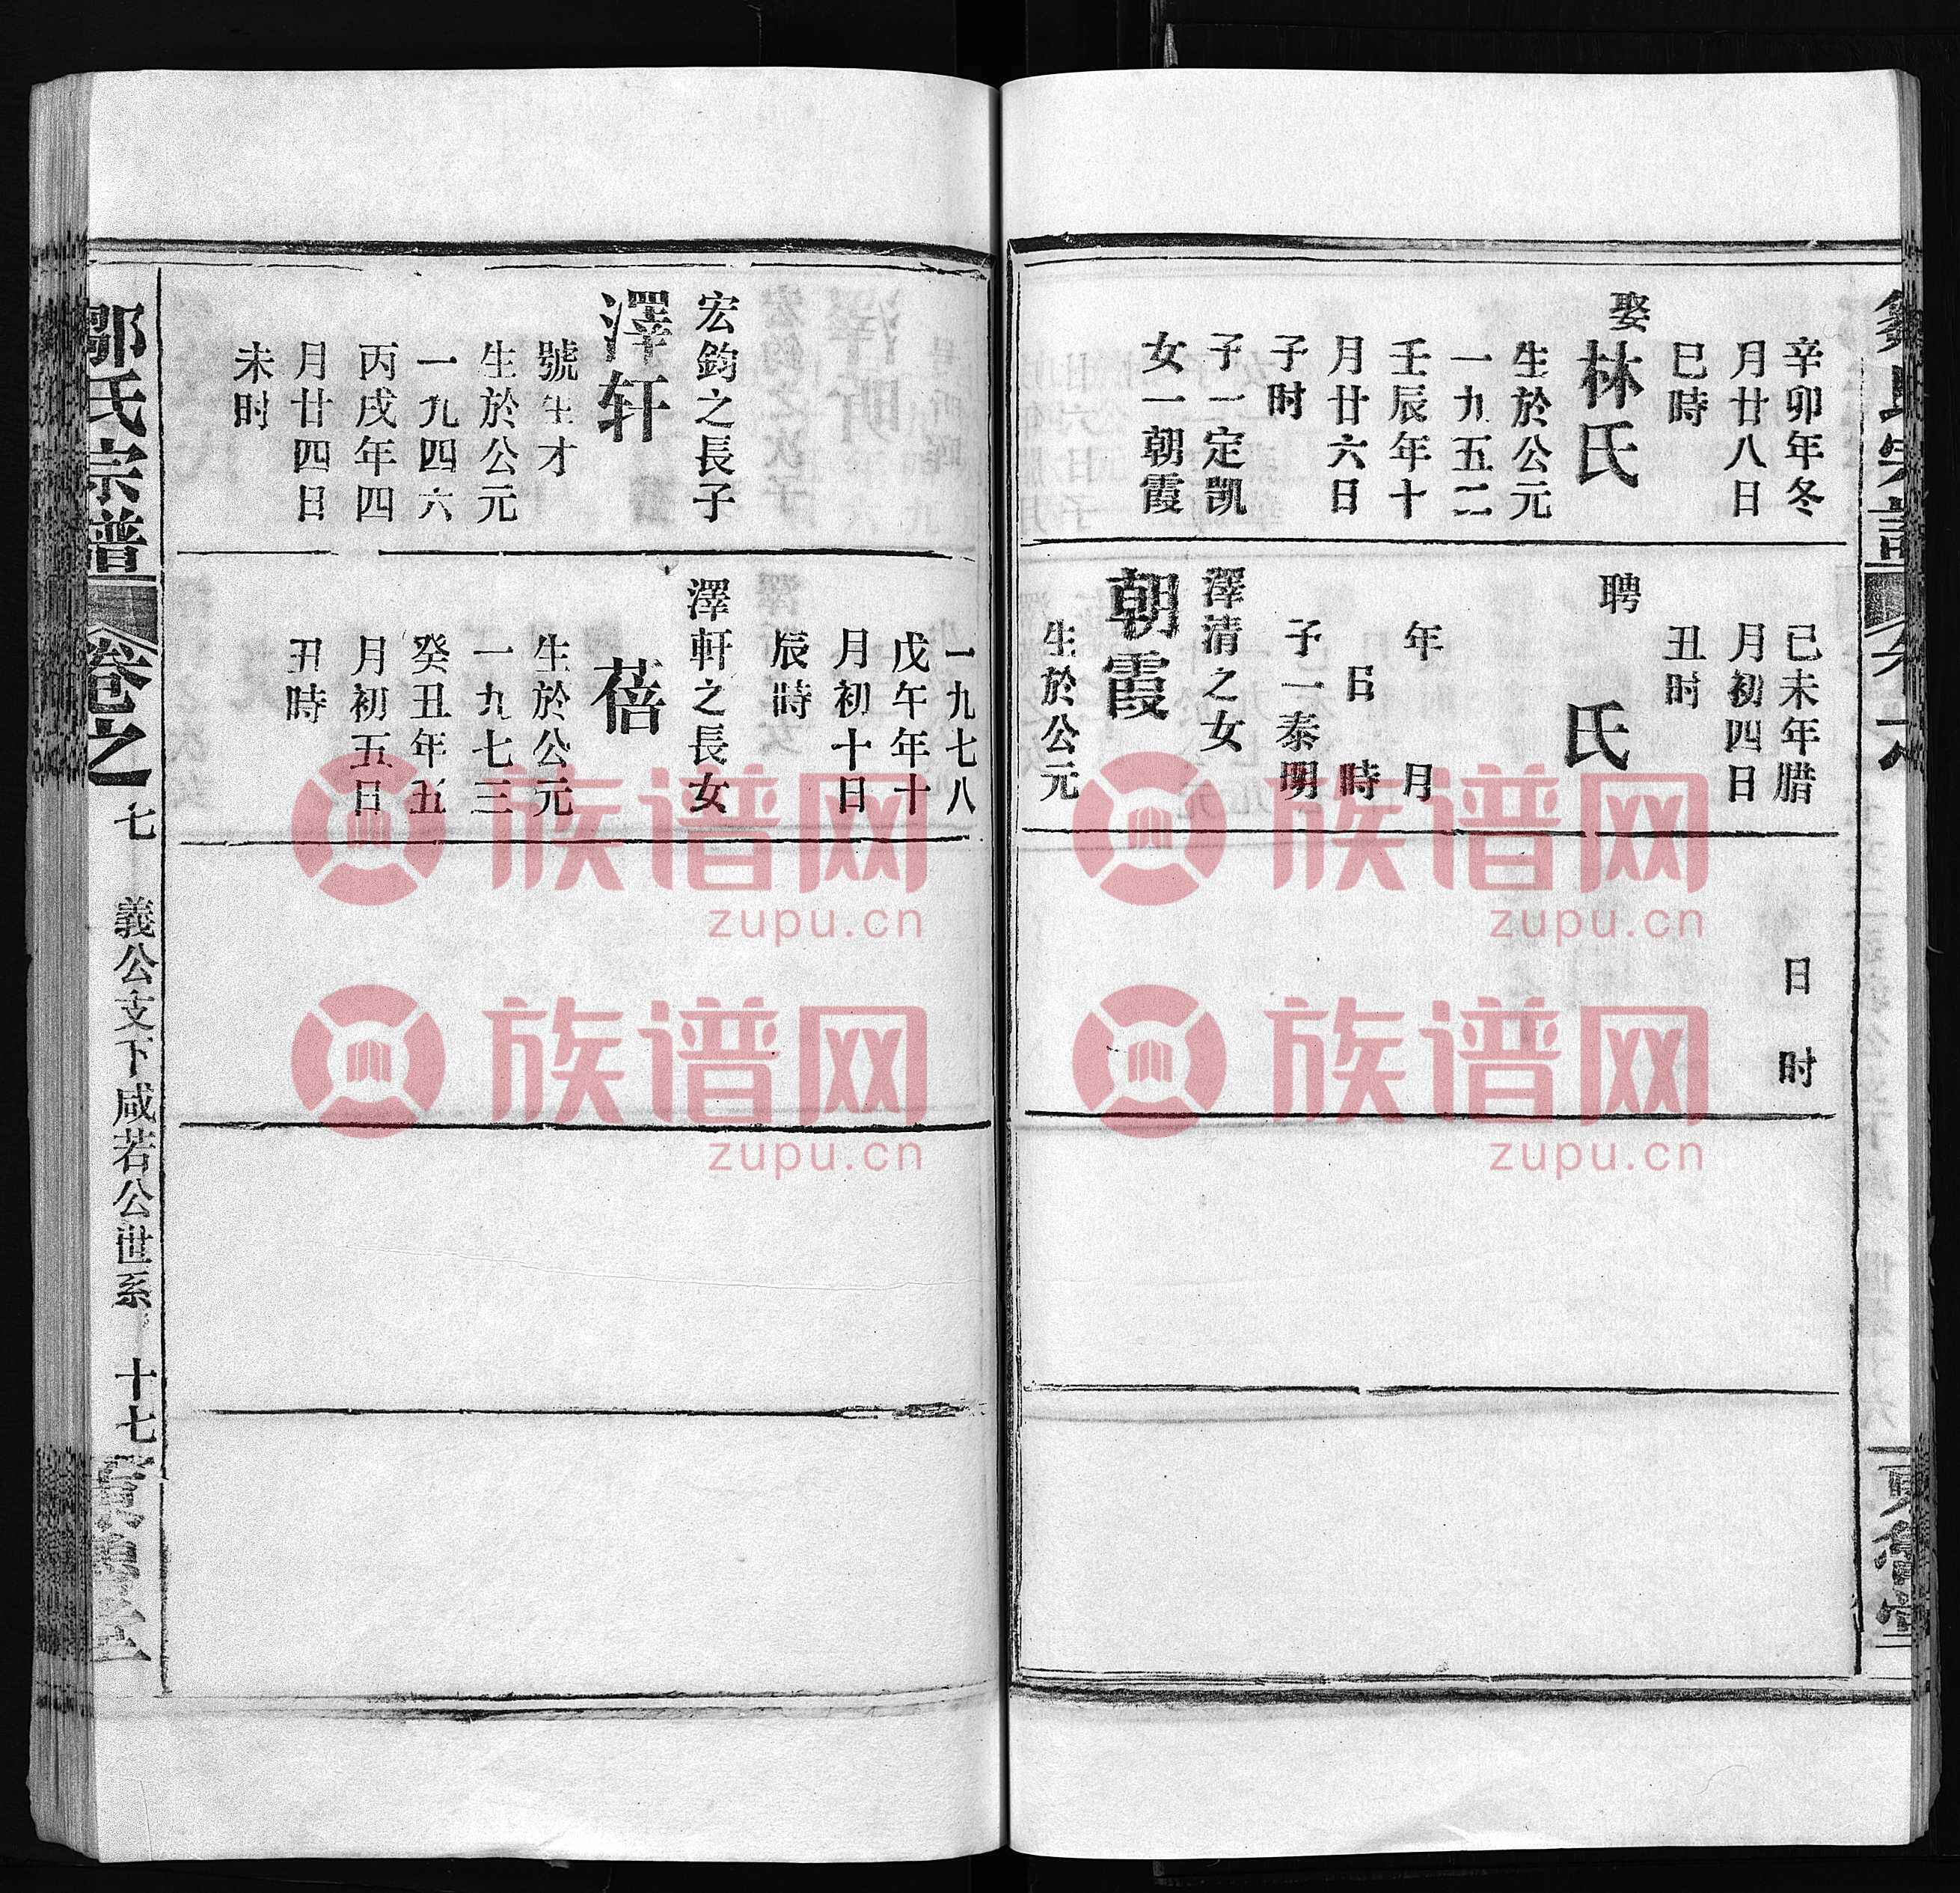 辛卯年冬
月廿八日
巳時
娶
林氏
生於公元
一九五二
壬辰年十
月廿六日
子时
子一定凯
女一朝霞
己未年腊
月初四日
丑时
聘
氏
年月
日時
子一泰明
澤清之女
朝霞
生於公元
日时
宏鈞之長子
澤轩
號生才
生於公元
一九四六
丙戌年四
月廿四日
未时
一九七八
戊午年十
月初十日
辰時
澤軒之長女
蓓
生於公元
一九七三
癸丑年五
月初五日
丑時
鄒氏宗譜
卷之
七
義公支下咸若公世系
十七
族谱网
zupu.cn
族谱网
zupu.cn
族谱网
zupu.cn
族谱网
zupu.cn